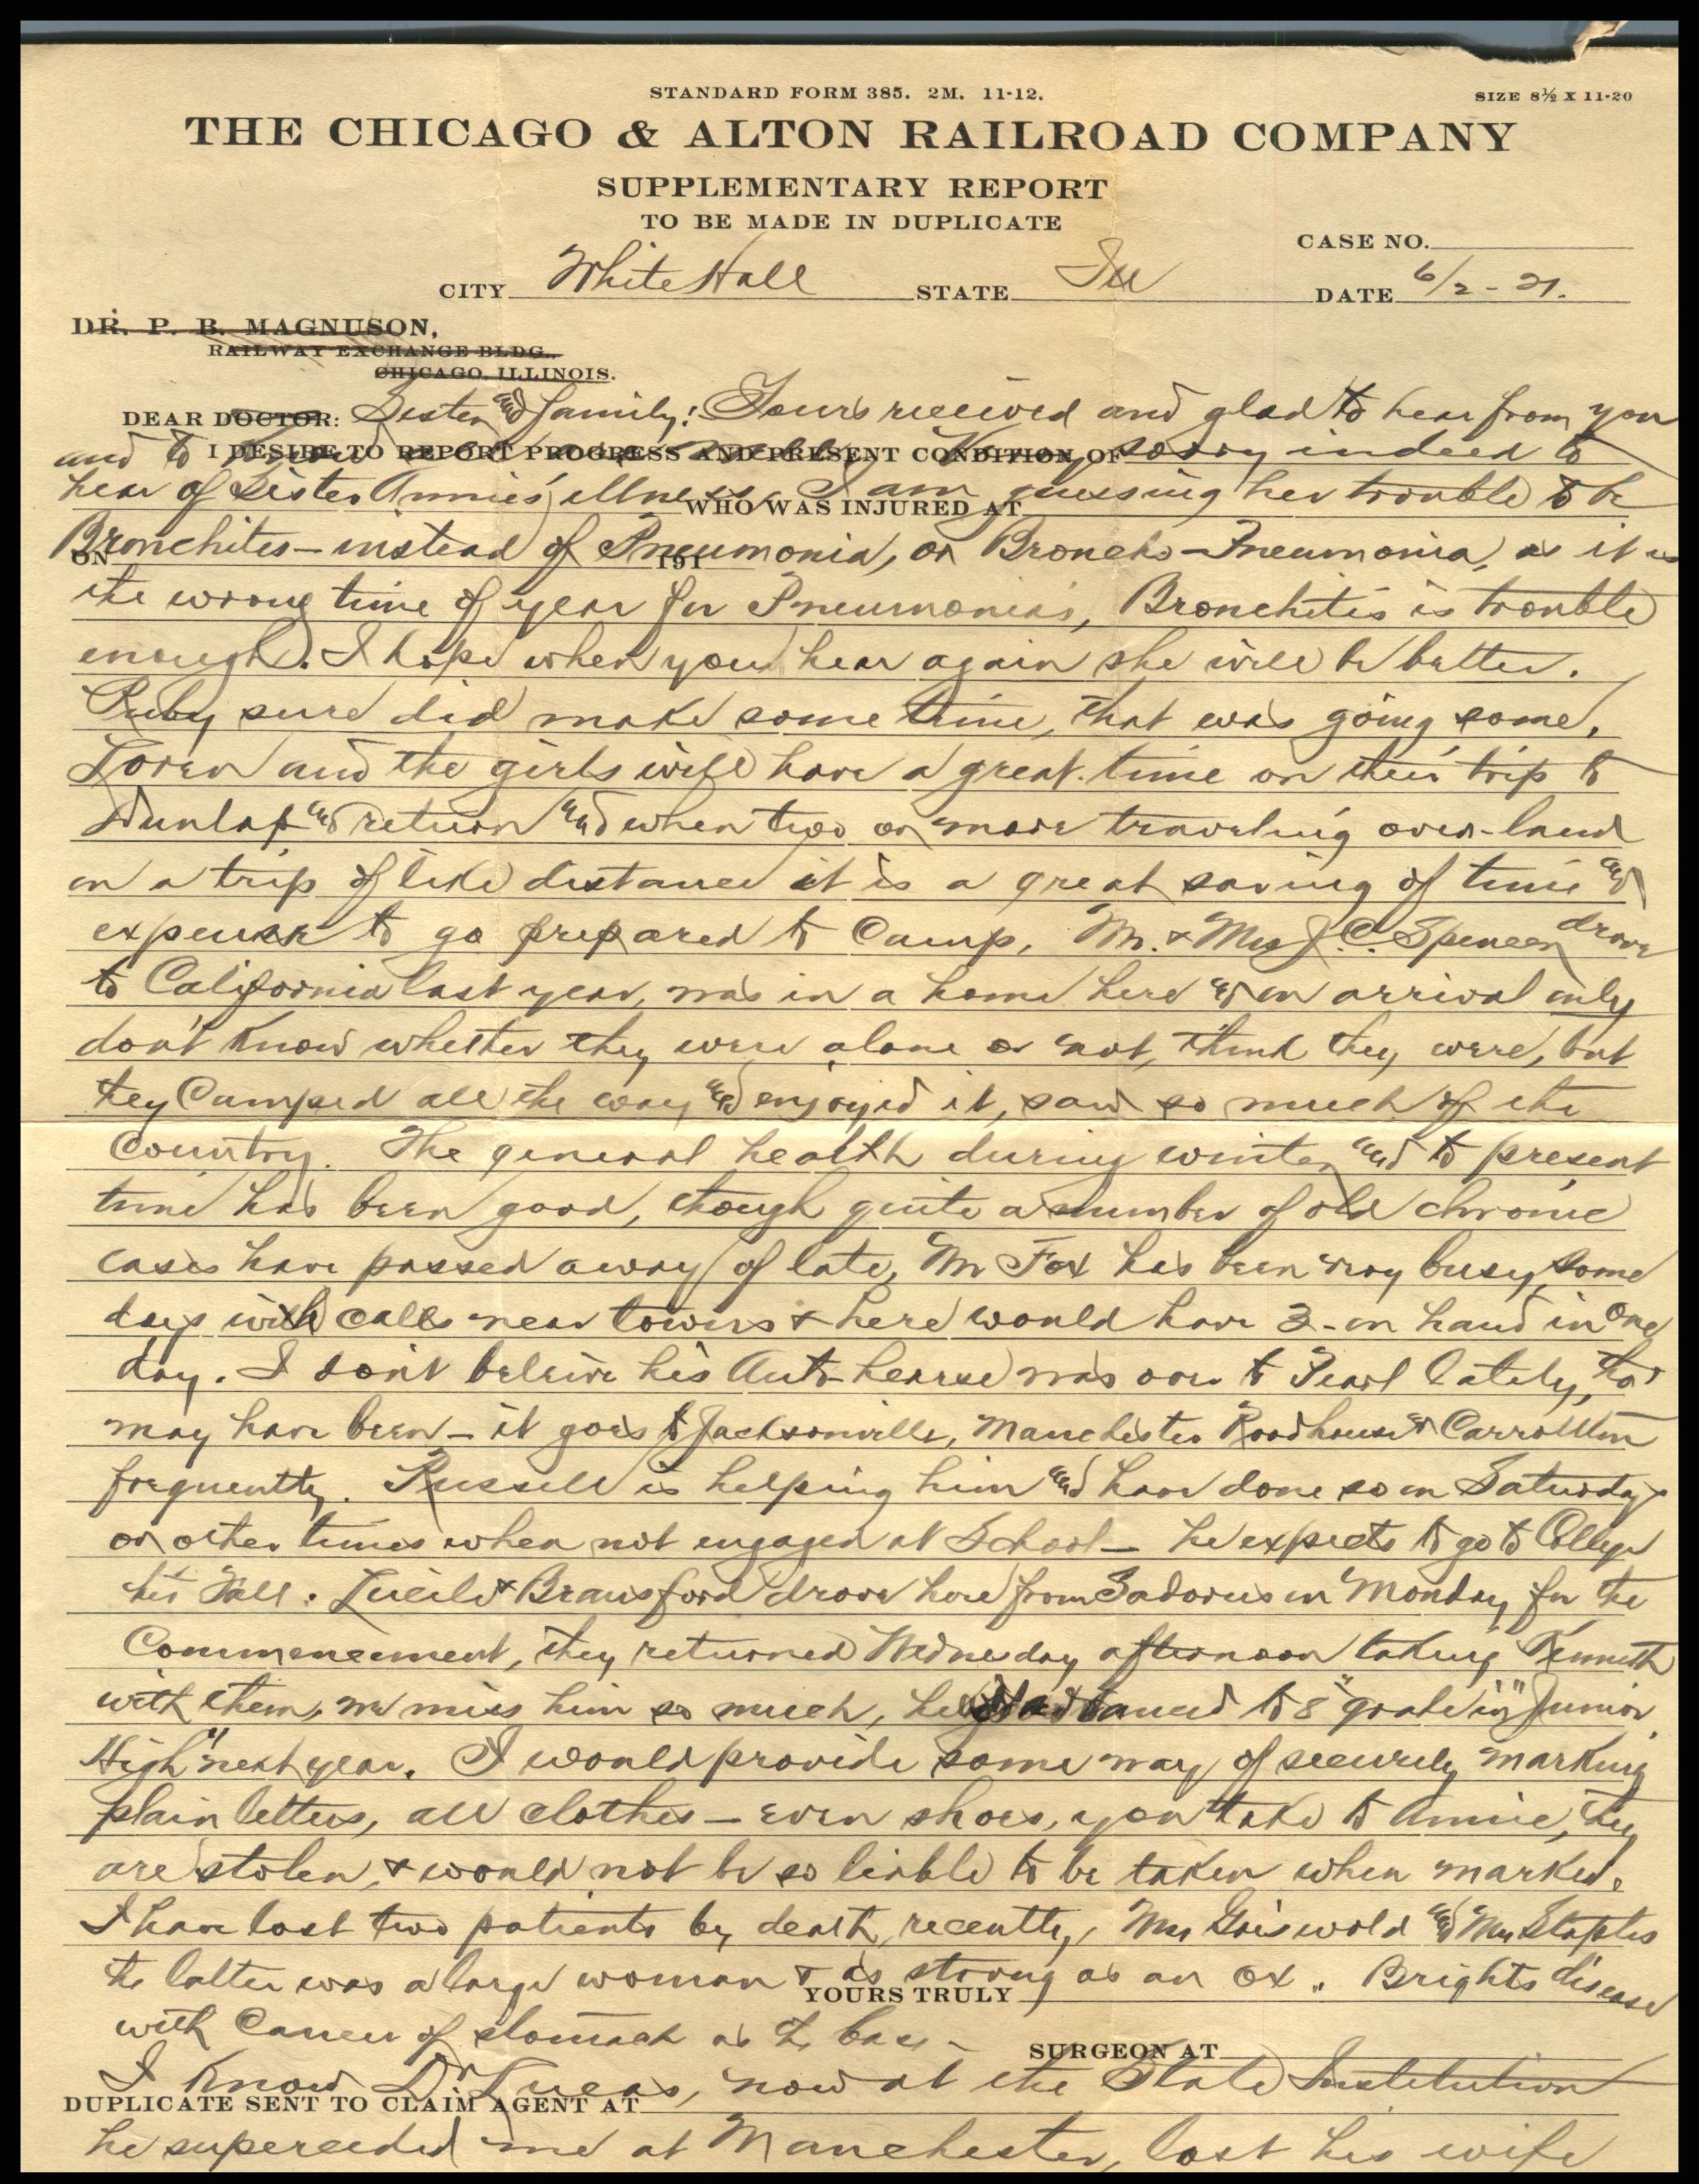 STANDARD FORM 385. 2M. 11-12.
SIZE 8½ X 11-20
THE CHICAGO & ALTON RAILROAD COMPANY
SUPPLEMENTARY REPORT
TO BE MADE IN DUPLICATE
CASE NO.
CITY White Hall STATE Ill DATE 6/2-21.
DR. P. B. MAGNUSON,
RAILWAY EXCHANGE BLDG.,
CHICAGO, ILLINOIS.
DEAR DOCTOR: Sister and family: Yours received and glad to hear from you
I DESIRE TO REPORT PROGRESS AND PRESENT CONDITION OF
and to know Very sorry indeed to
hear of Sister Annies illness. I am guessing her trouble to be
WHO WAS INJURED AT
Bronchites - instead of Pneumonia, or Broncho-Pneumonia, as it is
ON 191
the wrong time of year for Pneumonia's, Bronchitis is trouble
enough. I hope when you hear again she will be better.
Ruby sure did make some time, that was going some.
Loren and the girls will have a great time on their trip to
Dunlap and return and when two or more traveling over-land
on a trip of like distance it is a great saving of time and
expense to go prepared to Camp, Mr. & Mrs J. C. Spencer drove
to California last year, was in a home here and on arrival only
don't know whether they were alone or not, think they were, but
they Camped all the way and enjoyed it, saw so much of the
Country. The general health during winter and to present
time has been good, though quite a number of old chronic
cases have passed away of late, Mr Fox has been very busy, some
days with calls near towns & here would have 3 - on hand in one
day. I don't beleive his Auto-hearse was over to Pearl lately, tho'
may have been - it goes to Jacksonville, Manchester Roodhouse & Carrollton
frequently. Russell is helping him and have done so on Saturdays
or other times when not engaged at School - he expects to go to College
this Fall. Lucile & Bransford drove here from Sadorus on Monday for the
Commencement, they returned Wednesday afternoon taking Kenneth
with them, we miss him so much, he advanced to 8" grade in "Junior
High" next year. I would provide some way of securely marking
plain letters, all clothes - even shoes, you take to Annie, they
are stolen, & would not be so liable to be taken when marked.
I have lost two patients by death, recently, Mrs Griswold and Mrs Staples
the latter was a large woman & as strong as an Ox. Brights disease
YOURS TRULY
with Cancer of stomach as the base -
SURGEON AT
I know Dr Lucas, now at the State Institution
DUPLICATE SENT TO CLAIM AGENT AT
he superceded me at Manchester, lost his wife